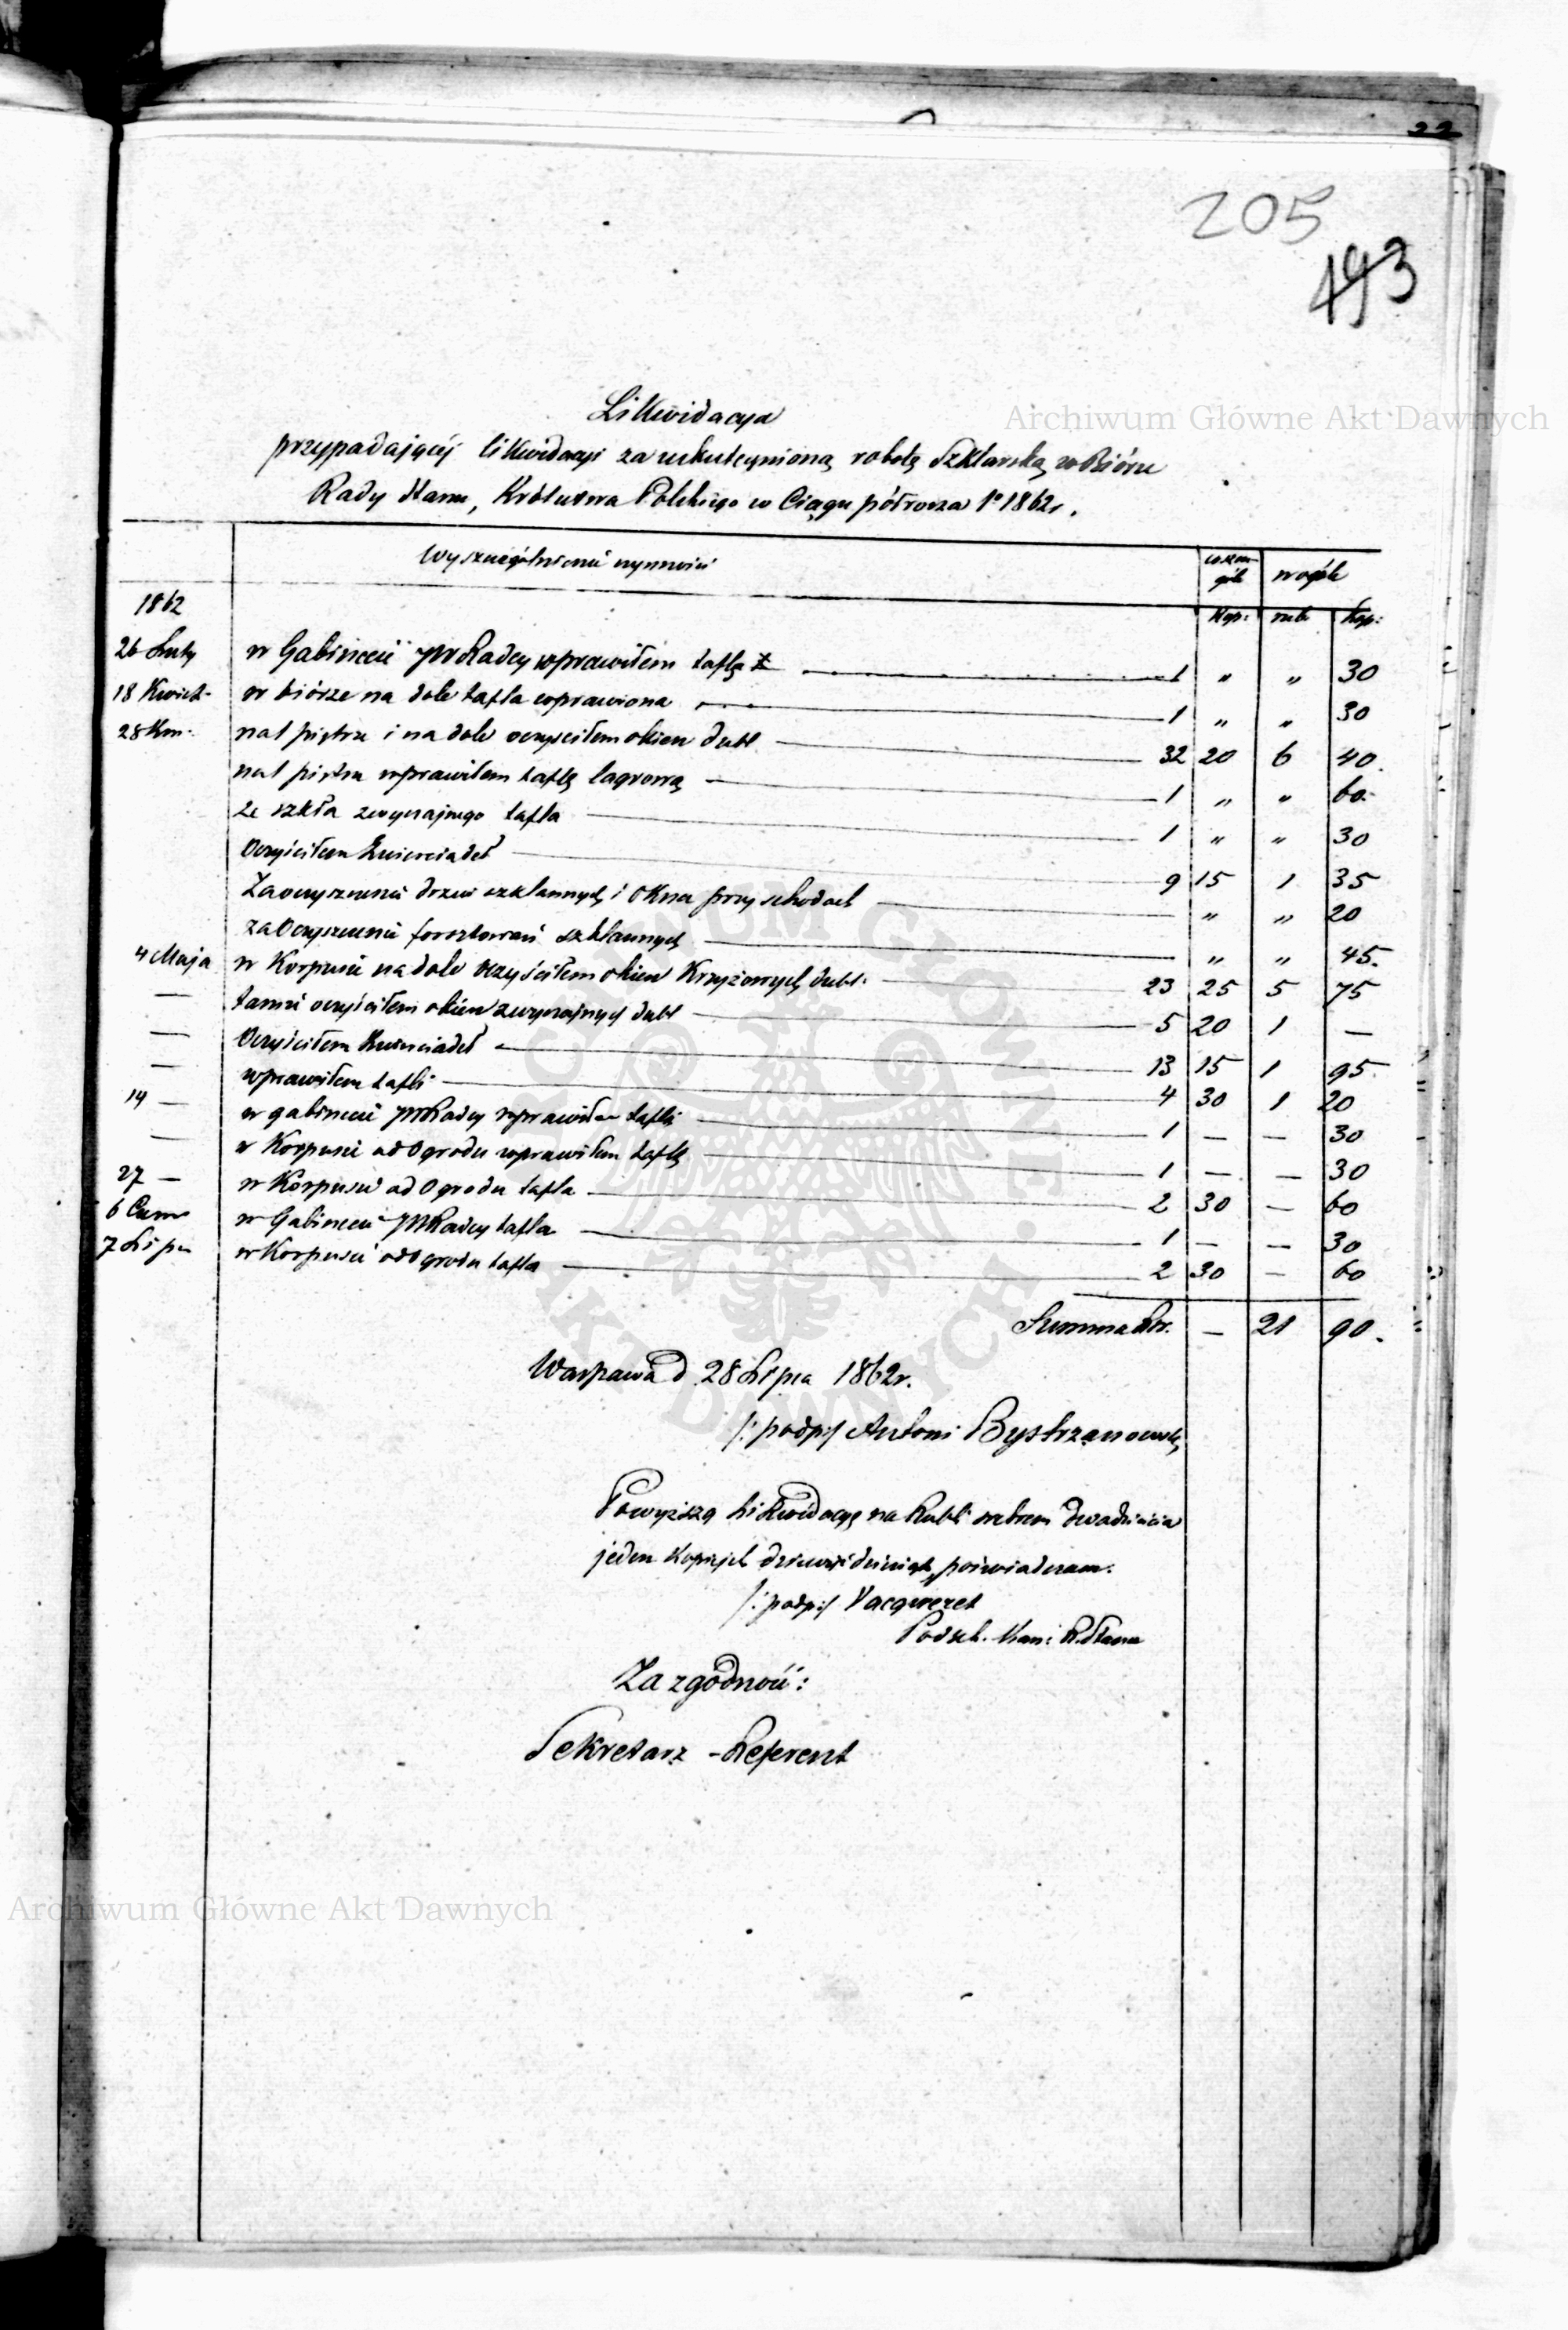 22
205
193
Likwidacya
przypadającéj likwidacyi za uskutecznioną robotę Szklarską w Biórze
Rady Stanu, Królestwa Polskiego w Ciągu półrocza 1º 1862r.
Wyszczególnienie czynności w szcze- w ogóle
góle
1862 Kop: rub: Kop:
26 Luty w Gabinecie JW Radcy wprawiłem taflę 1 " " 30
18 Kwiet- w biórze na dole tafla wprawiona 1 " " 30
28 Kw- na 1 piętrze i na dole oczyściłem okien dubl 32 20 6 40.
na 1 piętrze wprawiłem taflę lagrową 1 " " 60.
ze szkła zwyczajnego tafla 1 " " 30
Oczyściłem Zwierciadeł 9 15 1 35
Za oczyszczenie drzwi szklannych i okna przy schodach " " 20
za Oczyszczenie forsztowań szklannych " " 45.
4 Maja w Korpusie na dole Oczyściłem okien Krzyżowych dubl: 23 25 5 75
— tamże oczyściłem okien zwyczajnych dubl 5 20 1 —
— Oczyściłem Zwierciadeł 13 15 1 95.
— wprawiłem tafli 4 30 1 20
14 — w gabinecie JW Radcy wprawiłem taflę 1 — — 30
— w Korpusie od Ogrodu wprawiłem taflę 1 — — 30
27 — w Korpusie od Ogrodu tafla 2 30 — 60
6 Czerw w Gabinecie JW Radcy tafla 1 — — 30
7 Lipca w Korpusie od Ogrodu tafla 2 30 — 60
Summa Rbr. — 21 90.
Warszawa d. 28 Lipca 1862r.
/: podpis/ Antoni Bystrzanowski
Powyższą Likwidacyę na Rubli srebrem dwadzieścia
jeden Kopiejek dziewięćdziesiąt, poświadczam.
/: podpis/ Vacqueret
Podsek. Kan: R. Stanu
Za zgodność:
Sekretarz - Referent
Archiwum Główne Akt Dawnych
Archiwum Główne Akt Dawnych
ARCHIWUM GŁÓWNE AKT DAWNYCH